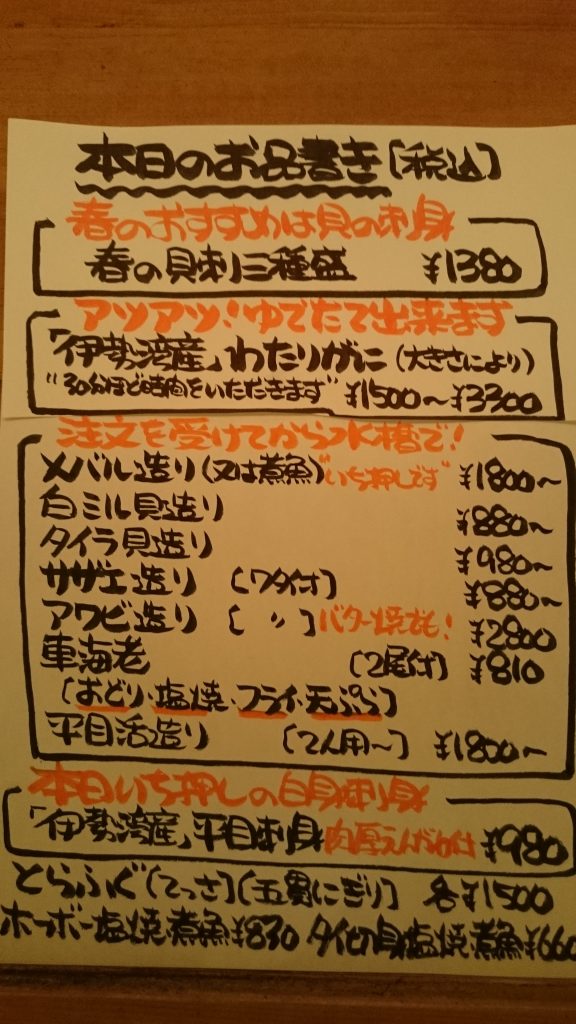 本日のお品書き〔税込〕
春のおすすめは貝の刺身
春の貝刺し三種盛 ¥1380
アツアツ！ゆでたて出来ます
「伊勢湾産」わたりがに（大きさにより）
"30分ほど時間をいただきます" ¥1500～¥3300
注文を受けてから水槽で！
メバル造り（又は煮魚）"いち押しです" ¥1800～
白ミル貝造り ¥880～
タイラ貝造り ¥980～
サザエ造り 〔ワタ付〕 ¥880～
アワビ造り 〔 〃 〕バター焼でも！ ¥2800
車海老 〔2尾付〕 ¥810
〔おどり・塩焼・フライ・天ぷら〕
平目活造り 〔2人用～〕 ¥1800～
本日いち押しの白身刺身
「伊勢湾産」平目刺身 肉厚えんがわ付 ¥980
とらふぐ〔てっさ〕〔五貫にぎり〕 各¥1500
ホーボー塩焼煮魚¥830 タイ切身塩焼煮魚¥660